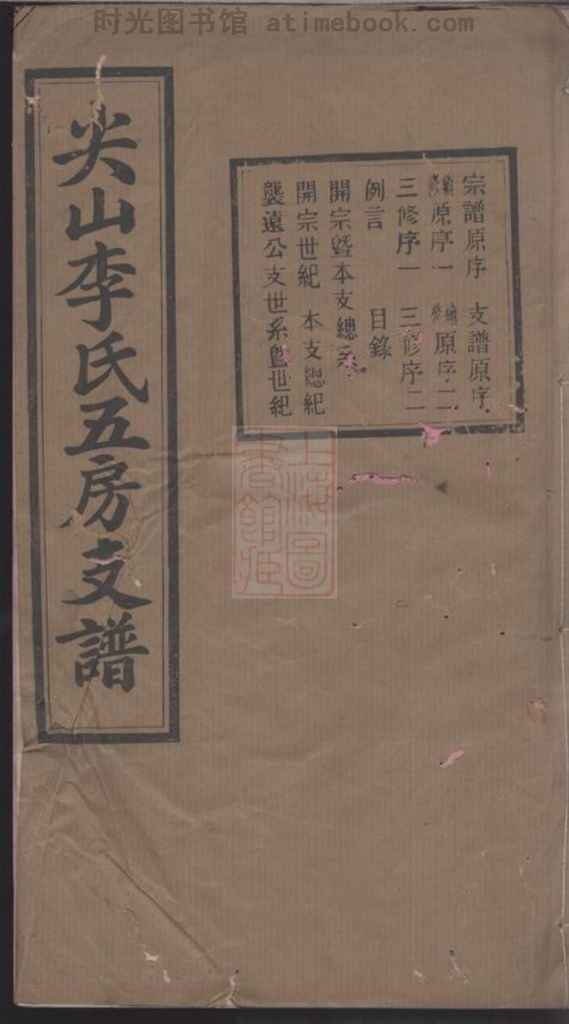 时光图书馆 atimebook.com
尖山李氏五房支譜
宗譜原序 支譜原序
續修原序一 續修原序二
三修序一 三修序二
例言 目錄
開宗暨本支總系
開宗世紀 本支總紀
襲遠公支世系暨世紀
上海圖
書館藏